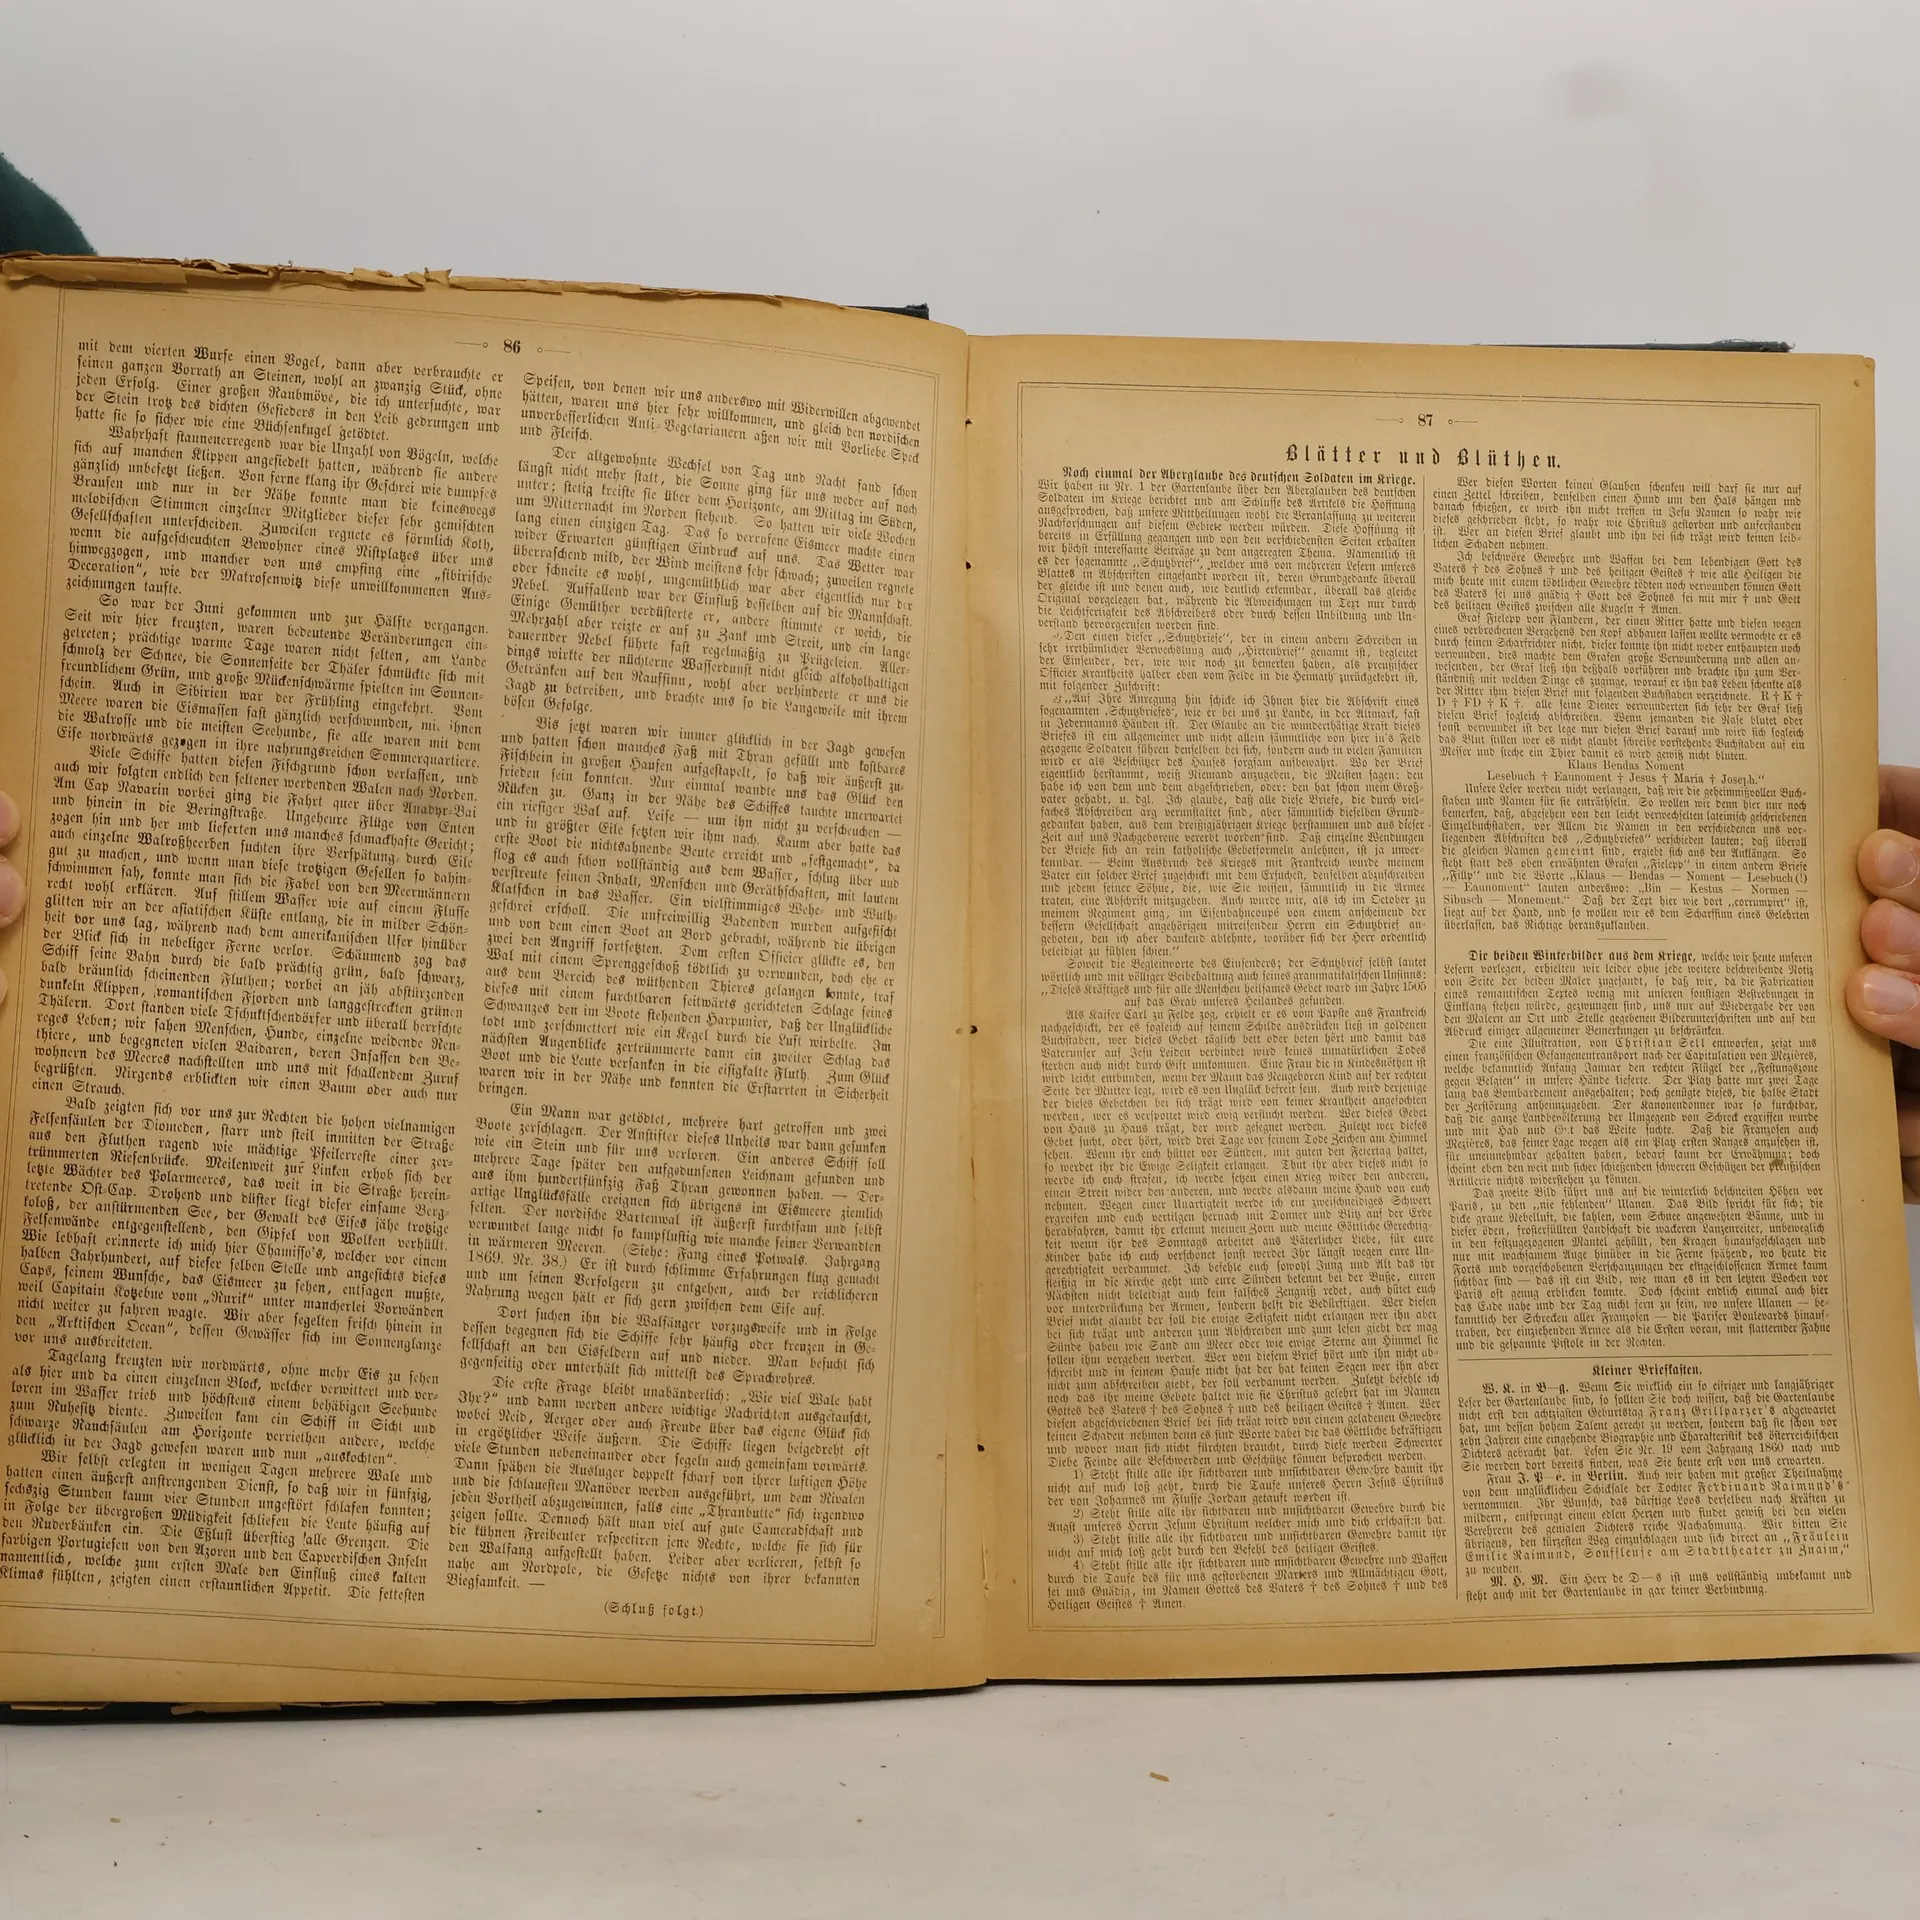 86
mit dem vierten Wurfe einen Vogel, dann aber verbrauchte er
seinen ganzen Vorrath an Steinen, wohl an zwanzig Stück, ohne
jeden Erfolg. Einer großen Raubmöve, die ich untersuchte, war
der Stein trotz des dichten Gefieders in den Leib gedrungen und
hatte sie so sicher wie eine Büchsenkugel getödtet.
Wahrhaft staunenerregend war die Unzahl von Vögeln, welche
sich auf manchen Klippen angesiedelt hatten, während sie andere
gänzlich unbesetzt ließen. Von ferne klang ihr Geschrei wie dumpfes
Brausen und nur in der Nähe konnte man die keineswegs
melodischen Stimmen einzelner Mitglieder dieser sehr gemischten
Gesellschaften unterscheiden. Zuweilen regnete es förmlich Koth,
wenn die aufgescheuchten Bewohner eines Nistplatzes über uns
hinwegzogen, und mancher von uns empfing eine „sibirische
Decoration“, wie der Matrosenwitz diese unwillkommenen Aus-
zeichnungen taufte.
So war der Juni gekommen und zur Hälfte vergangen.
Seit wir hier kreuzten, waren bedeutende Veränderungen ein-
getreten; prächtige warme Tage waren nicht selten, am Lande
schmolz der Schnee, die Sonnenseite der Thäler schmückte sich mit
freundlichem Grün, und große Mückenschwärme spielten im Sonnen-
schein. Auch in Sibirien war der Frühling eingekehrt. Vom
Meere waren die Eismassen fast gänzlich verschwunden, mit ihnen
die Walrosse und die meisten Seehunde, sie alle waren mit dem
Eise nordwärts gezogen in ihre nahrungsreichen Sommerquartiere.
Viele Schiffe hatten diesen Fischgrund schon verlassen, und
auch wir folgten endlich den seltener werdenden Walen nach Norden.
Am Cap Navarin vorbei ging die Fahrt quer über Anadyr-Bai
und hinein in die Beringstraße. Ungeheure Flüge von Enten
zogen hin und her und lieferten uns manches schmackhafte Gericht;
auch einzelne Walroßheerden suchten ihre Verspätung durch Eile
gut zu machen, und wenn man diese trotzigen Gesellen so dahin-
schwimmen sah, konnte man sich die Fabel von den Meermännern
recht wohl erklären. Auf stillem Wasser wie auf einem Flusse
glitten wir an der asiatischen Küste entlang, die in milder Schön-
heit vor uns lag, während nach dem amerikanischen Ufer hinüber
der Blick sich in nebeliger Ferne verlor. Schäumend zog das
Schiff seine Bahn durch die bald prächtig grün, bald schwarz,
bald bräunlich scheinenden Fluthen; vorbei an jäh abstürzenden
dunkeln Klippen, romantischen Fjorden und langgestreckten grünen
Thälern. Dort standen viele Tschuktschendörfer und überall herrschte
reges Leben; wir sahen Menschen, Hunde, einzelne weidende Ren-
thiere, und begegneten vielen Baidaren, deren Insassen den Be-
wohnern des Meeres nachstellten und uns mit schallendem Zuruf
begrüßten. Nirgends erblickten wir einen Baum oder auch nur
einen Strauch.
Bald zeigten sich vor uns zur Rechten die hohen vielnamigen
Felsensäulen der Diomeden, starr und steil inmitten der Straße
aus den Fluthen ragend wie mächtige Pfeilerreste einer zer-
trümmerten Riesenbrücke. Meilenweit zur Linken erhob sich der
letzte Wächter des Polarmeeres, das weit in die Straße herein-
tretende Ost-Cap. Drohend und düster liegt dieser einsame Berg-
koloß, der anstürmenden See, der Gewalt des Eises jähe trotzige
Felsenwände entgegenstellend, den Gipfel von Wolken verhüllt.
Wie lebhaft erinnerte ich mich hier Chamisso’s, welcher vor einem
halben Jahrhundert, auf dieser selben Stelle und angesichts dieses
Caps, seinem Wunsche, das Eismeer zu sehen, entsagen mußte,
weil Capitain Kotzebue vom „Rurik“ unter mancherlei Vorwänden
nicht weiter zu fahren wagte. Wir aber segelten frisch hinein in
den „Arktischen Ocean“, dessen Gewässer sich im Sonnenglanze
vor uns ausbreiteten.
Tagelang kreuzten wir nordwärts, ohne mehr Eis zu sehen
als hier und da einen einzelnen Block, welcher verwittert und ver-
loren im Wasser trieb und höchstens einem behäbigen Seehunde
zum Ruhesitz diente. Zuweilen kam ein Schiff in Sicht und
schwarze Rauchsäulen am Horizonte verriethen andere, welche
glücklich in der Jagd gewesen waren und nun „auskochten“.
Wir selbst erlegten in wenigen Tagen mehrere Wale und
hatten einen äußerst anstrengenden Dienst, so daß wir in fünfzig,
sechszig Stunden kaum vier Stunden ungestört schlafen konnten;
in Folge der übergroßen Müdigkeit schliefen die Leute häufig auf
den Ruderbänken ein. Die Eßlust überstieg alle Grenzen. Die
farbigen Portugiesen von den Azoren und den Capverdischen Inseln
namentlich, welche zum ersten Male den Einfluß eines kalten
Klimas fühlten, zeigten einen erstaunlichen Appetit. Die fettesten
Speisen, von denen wir uns anderswo mit Widerwillen abgewendet
hätten, waren uns hier sehr willkommen, und gleich den nordischen
unverbesserlichen Anti-Vegetarianern aßen wir mit Vorliebe Speck
und Fleisch.
Der altgewohnte Wechsel von Tag und Nacht fand schon
längst nicht mehr statt, die Sonne ging für uns weder auf noch
unter; stetig kreiste sie über dem Horizonte, am Mittag im Süden,
um Mitternacht im Norden stehend. So hatten wir viele Wochen
lang einen einzigen Tag. Das so verrufene Eismeer machte einen
wider Erwarten günstigen Eindruck auf uns. Das Wetter war
überraschend mild, der Wind meistens sehr schwach; zuweilen regnete
oder schneite es wohl, ungemüthlich war aber eigentlich nur der
Nebel. Auffallend war der Einfluß desselben auf die Mannschaft.
Einige Gemüther verdüsterte er, andere stimmte er weich, die
Mehrzahl aber reizte er auf zu Zank und Streit, und ein lange
dauernder Nebel führte fast regelmäßig zu Prügeleien. Aller-
dings wirkte der nüchterne Wasserdunst nicht gleich alkoholhaltigen
Getränken auf den Raufsinn, wohl aber verhinderte er uns die
Jagd zu betreiben, und brachte uns so die Langeweile mit ihrem
bösen Gefolge.
Bis jetzt waren wir immer glücklich in der Jagd gewesen
und hatten schon manches Faß mit Thran gefüllt und kostbares
Fischbein in großen Haufen aufgestapelt, so daß wir äußerst zu-
frieden sein konnten. Nur einmal wandte uns das Glück den
Rücken zu. Ganz in der Nähe des Schiffes tauchte unerwartet
ein riesiger Wal auf. Leise — um ihn nicht zu verscheuchen —
und in größter Eile setzten wir ihm nach. Kaum aber hatte das
erste Boot die nichtsahnende Beute erreicht und „festgemacht“, da
flog es auch schon vollständig aus dem Wasser, schlug über und
verstreute seinen Inhalt, Menschen und Geräthschaften, mit lautem
Klatschen in das Wasser. Ein vielstimmiges Wehe- und Wuth-
geschrei erscholl. Die unfreiwillig Badenden wurden aufgefischt
und von dem einen Boot an Bord gebracht, während die übrigen
zwei den Angriff fortsetzten. Dem ersten Officier glückte es, den
Wal mit einem Sprenggeschoß tödtlich zu verwunden, doch ehe er
aus dem Bereich des wüthenden Thieres gelangen konnte, traf
dieses mit einem furchtbaren seitwärts gerichteten Schlage seines
Schwanzes den im Boote stehenden Harpunier, daß der Unglückliche
todt und zerschmettert wie ein Kegel durch die Luft wirbelte. Im
nächsten Augenblicke zertrümmerte dann ein zweiter Schlag das
Boot und die Leute versanken in die eisigkalte Fluth. Zum Glück
waren wir in der Nähe und konnten die Erstarrten in Sicherheit
bringen.
Ein Mann war getödtet, mehrere hart getroffen und zwei
Boote zerschlagen. Der Anstifter dieses Unheils war dann gesunken
wie ein Stein und für uns verloren. Ein anderes Schiff soll
mehrere Tage später den aufgedunsenen Leichnam gefunden und
aus ihm hundertfünfzig Faß Thran gewonnen haben. — Der-
artige Unglücksfälle ereignen sich übrigens im Eismeere ziemlich
selten. Der nordische Bartenwal ist äußerst furchtsam und selbst
verwundet lange nicht so kampflustig wie manche seiner Verwandten
in wärmeren Meeren. (Siehe: Fang eines Potwals. Jahrgang
1869. Nr. 38.) Er ist durch schlimme Erfahrungen klug gemacht
und um seinen Verfolgern zu entgehen, auch der reichlicheren
Nahrung wegen hält er sich gern zwischen dem Eise auf.
Dort suchen ihn die Walfänger vorzugsweise und in Folge
dessen begegnen sich die Schiffe sehr häufig oder kreuzen in Ge-
sellschaft an den Eisfeldern auf und nieder. Man besucht sich
gegenseitig oder unterhält sich mittelst des Sprachrohres.
Die erste Frage bleibt unabänderlich: „Wie viel Wale habt
Ihr?“ und dann werden andere wichtige Nachrichten ausgetauscht,
wobei Neid, Aerger oder auch Freude über das eigene Glück sich
in ergötzlicher Weise äußern. Die Schiffe liegen beigedreht oft
viele Stunden nebeneinander oder segeln auch gemeinsam vorwärts.
Dann spähen die Ausluger doppelt scharf von ihrer luftigen Höhe
und die schlauesten Manöver werden ausgeführt, um dem Rivalen
jeden Vortheil abzugewinnen, falls eine „Thranbutte“ sich irgendwo
zeigen sollte. Dennoch hält man viel auf gute Cameradschaft und
die kühnen Freibeuter respectiren jene Rechte, welche sie sich für
den Walfang aufgestellt haben. Leider aber verlieren, selbst so
nahe am Nordpole, die Gesetze nichts von ihrer bekannten
Biegsamkeit. —
(Schluß folgt.)
87
Blätter und Blüthen.
Noch einmal der Aberglaube des deutschen Soldaten im Kriege.
Wir haben in Nr. 1 der Gartenlaube über den Aberglauben des deutschen
Soldaten im Kriege berichtet und am Schlusse des Artikels die Hoffnung
ausgesprochen, daß unsere Mittheilungen wohl die Veranlassung zu weiteren
Nachforschungen auf diesem Gebiete werden würden. Diese Hoffnung ist
bereits in Erfüllung gegangen und von den verschiedensten Seiten erhalten
wir höchst interessante Beiträge zu dem angeregten Thema. Namentlich ist
es der sogenannte „Schutzbrief“, welcher uns von mehreren Lesern unseres
Blattes in Abschriften eingesandt worden ist, deren Grundgedanke überall
der gleiche ist und denen auch, wie deutlich erkennbar, überall das gleiche
Original vorgelegen hat, während die Abweichungen im Text nur durch
die Leichtfertigkeit des Abschreibers oder durch dessen Unbildung und Un-
verstand hervorgerufen worden sind.
Den einen dieser „Schutzbriefe“, der in einem andern Schreiben in
sehr irrthümlicher Verwechslung auch „Hirtenbrief“ genannt ist, begleitet
der Einsender, der, wie wir noch zu bemerken haben, als preußischer
Officier Krankheits halber eben vom Felde in die Heimath zurückgekehrt ist,
mit folgender Zuschrift:
„Auf Ihre Anregung hin schicke ich Ihnen hier die Abschrift eines
sogenannten ‚Schutzbriefes‘, wie er bei uns zu Lande, in der Altmark, fast
in Jedermanns Händen ist. Der Glaube an die wunderthätige Kraft dieses
Briefes ist ein allgemeiner und nicht allein sämmtliche von hier in’s Feld
gezogene Soldaten führen denselben bei sich, sondern auch in vielen Familien
wird er als Beschützer des Hauses sorgsam aufbewahrt. Wo der Brief
eigentlich herstammt, weiß Niemand anzugeben, die Meisten sagen: den
habe ich von dem und dem abgeschrieben, oder: den hat schon mein Groß-
vater gehabt, u. dgl. Ich glaube, daß alle diese Briefe, die durch viel-
faches Abschreiben arg verunstaltet sind, aber sämmtlich dieselben Grund-
gedanken haben, aus dem dreißigjährigen Kriege herstammen und aus dieser
Zeit auf uns Nachgeborene vererbt worden sind. Daß einzelne Wendungen
der Briefe sich an rein katholische Gebetformeln anlehnen, ist ja unver-
kennbar. — Beim Ausbruch des Krieges mit Frankreich wurde meinem
Vater ein solcher Brief zugeschickt mit dem Ersuchen, denselben abzuschreiben
und jedem seiner Söhne, die, wie Sie wissen, sämmtlich in die Armee
traten, eine Abschrift mitzugeben. Auch wurde mir, als ich im October zu
meinem Regiment ging, im Eisenbahncoupé von einem anscheinend der
bessern Gesellschaft angehörigen mitreisenden Herrn ein Schutzbrief an-
geboten, den ich aber dankend ablehnte, worüber sich der Herr ordentlich
beleidigt zu fühlen schien.“
Soweit die Begleitworte des Einsenders; der Schutzbrief selbst lautet
wörtlich und mit völliger Beibehaltung auch seines grammatikalischen Unsinns:
„Dieses Kräftiges und für alle Menschen heilsames Gebet ward im Jahre 1505
auf das Grab unseres Heilandes gefunden.
Als Kaiser Carl zu Felde zog, erhielt er es vom Papste aus Frankreich
nachgeschickt, der es sogleich auf seinem Schilde ausdrücken ließ in goldenen
Buchstaben, wer dieses Gebet täglich bett oder beten hört und damit das
Vaterunser auf Jesu Leiden verbindet wird keines unnatürlichen Todes
sterben auch nicht durch Gift umkommen. Eine Frau die in Kindesnöthen ist
wird leicht entbunden, wenn der Mann das Neugeboren Kind auf der rechten
Seite der Mutter legt, wird es von Unglück befreit sein. Auch wird derjenige
der dieses Gebetchen bei sich trägt wird von keiner Krankheit angefochten
werden, wer es verspottet wird ewig verflucht werden. Wer dieses Gebet
von Haus zu Haus trägt, der wird gesegnet werden. Zuletzt wer dieses
Gebet sucht, oder hört, wird drei Tage vor seinem Tode Zeichen am Himmel
sehen. Wenn ihr euch hüttet vor Sünden, mit guten den Feiertag haltet,
so werdet ihr die Ewige Seligkeit erlangen. Thut ihr aber dieses nicht so
werde ich euch strafen, ich werde setzen einen Krieg wider den anderen,
einen Streit wider den anderen, und werde alsdann meine Hand von euch
nehmen. Wegen einer Unartigkeit werde ich ein zweischneidiges Schwert
ergreifen und euch vertilgen hernach mit Donner und Blitz auf der Erde
herabfahren, damit ihr erkennt meinen Zorn und meine Göttliche Gerechtig-
keit wenn ihr des Sonntags arbeitet aus Väterlicher Liebe, für eure
Kinder habe ich euch verschonet sonst werdet Ihr längst wegen eure Un-
gerechtigkeit verdammet. Ich befehle euch sowohl Jung und Alt das ihr
fleißig in die Kirche geht und eure Sünden bekennt bei der Buße, euren
Nächsten nicht beleidigt auch kein falsches Zeugniß redet, auch hütet euch
vor unterdrückung der Armen, sondern helft die Bedürftigen. Wer diesen
Brief nicht glaubt der soll die ewige Seligkeit nicht erlangen wer ihn aber
bei sich trägt und anderen zum Abschreiben und zum lesen giebt der mag
Sünde haben wie Sand am Meer oder wie ewige Sterne am Himmel sie
sollen ihm vergehen werden. Wer von diesem Brief hört und ihn nicht ab-
schreibt und in seinem Hause nicht hat der hat keinen Segen wer ihn aber
nicht zum abschreiben giebt, der soll verdammt werden. Zuletzt befehle ich
noch das ihr meine Gebote haltet wie sie Christus gelehrt hat im Namen
Gottes des Vaters † des Sohnes † und des heiligen Geistes † Amen. Wer
diesen abgeschriebenen Brief bei sich trägt wird von einem geladenen Gewehre
keinen Schaden nehmen denn es sind Worte dabei die das Göttliche bekräftigen
und wovor man sich nicht fürchten braucht, durch diese werden Schwerter
Diebe Feinde alle Beschwerden und Geschütze können besprochen werden.
1) Steht stille alle ihr sichtbaren und unsichtbaren Gewehre damit ihr
nicht auf mich loß geht, durch die Taufe unseres Herrn Jesus Christus
der von Johannes im Flusse Jordan getauft worden ist.
2) Steht stille alle ihr sichtbaren und unsichtbaren Gewehre durch die
Angst unseres Herrn Jesum Christum welcher mich und dich erschaffen hat.
3) Steht stille alle ihr sichtbaren und unsichtbaren Gewehre damit ihr
nicht auf mich loß geht durch den Befehl des heiligen Geistes.
4) Steht stille alle ihr sichtbaren und unsichtbaren Gewehre und Waffen
durch die Taufe des für uns gestorbenen Marters und Allmächtigen Gott,
sei uns Gnädig, im Namen Gottes des Vaters † des Sohnes † und des
Heiligen Geistes † Amen.
Wer diesen Worten keinen Glauben schenken will darf sie nur auf
einen Zettel schreiben, denselben einen Hund um den Hals hängen und
danach schießen, er wird ihn nicht treffen in Jesu Namen so wahr wie
dieses geschrieben steht, so wahr wie Christus gestorben und auferstanden
ist. Wer an diesen Brief glaubt und ihn bei sich trägt wird keinen leib-
lichen Schaden nehmen.
Ich beschwöre Gewehre und Waffen bei dem lebendigen Gott des
Vaters † des Sohnes † und des heiligen Geistes † wie alle Heiligen die
mich heute mit einem tödtlichen Gewehre tödten noch verwunden können Gott
des Vaters sei uns gnädig † Gott des Sohnes sei mit mir † und Gott
des heiligen Geistes zwischen alle Kugeln † Amen.
Graf Fielepp von Flandern, der einen Ritter hatte und diesen wegen
eines verbrochenen Vergehens den Kopf abhauen lassen wollte vermochte er es
durch seinen Scharfrichter nicht, dieser konnte ihn nicht weder enthaupten noch
verwunden, dies machte dem Grafen große Verwunderung und allen an-
wesenden, der Graf ließ ihn deßhalb vorführen und brachte ihn zum Ver-
ständniß mit welchen Dinge es zuginge, worauf er ihn das Leben schenkte als
der Ritter ihm diesen Brief mit folgenden Buchstaben verzeichnete. R † K †
D † FD † K †. alle seine Diener verwunderten sich sehr der Graf ließ
diesen Brief sogleich abschreiben. Wenn jemanden die Nase blutet oder
sonst verwundet ist der lege nur diesen Brief darauf und wird sich sogleich
das Blut stillen wer es nicht glaubt schreibe vorstehende Buchstaben auf ein
Messer und steche ein Thier damit es wird gewiß nicht bluten.
Klaus Bendas Noment
Lesebuch † Eaunoment † Jesus † Maria † Joseph.“
Unsere Leser werden nicht verlangen, daß wir die geheimnißvollen Buch-
staben und Namen für sie enträthseln. So wollen wir denn hier nur noch
bemerken, daß, abgesehen von den leicht verwechselten lateinisch geschriebenen
Einzelbuchstaben, vor Allem die Namen in den verschiedenen uns vor-
liegenden Abschriften des „Schutzbriefes“ verschieden lauten; daß überall
die gleichen Namen gemeint sind, ergiebt sich aus den Anklängen. So
steht statt des oben erwähnten Grafen „Fielepp“ in einem andern Briefe
„Filly“ und die Worte „Klaus — Bendas — Noment — Lesebuch (!)
— Eaunoment“ lauten anderswo; „Bin — Kestus — Normen —
Sibusch — Monement.“ Daß der Text hier wie dort „corrumpirt“ ist,
liegt auf der Hand, und so wollen wir es dem Scharfsinn eines Gelehrten
überlassen, das Richtige herauszuklauben.
Die beiden Winterbilder aus dem Kriege, welche wir heute unseren
Lesern vorlegen, erhielten wir leider ohne jede weitere beschreibende Notiz
von Seite der beiden Maler zugesandt, so daß wir, da die Fabrication
eines romantischen Textes wenig mit unseren sonstigen Bestrebungen in
Einklang stehen würde, gezwungen sind, uns nur auf Wiedergabe der von
den Malern an Ort und Stelle gegebenen Bilderunterschriften und auf den
Abdruck einiger allgemeiner Bemerkungen zu beschränken.
Die eine Illustration, von Christian Sell entworfen, zeigt uns
einen französischen Gefangenentransport nach der Capitulation von Mezières,
welche bekanntlich Anfang Januar den rechten Flügel der „Festungszone
gegen Belgien“ in unsere Hände lieferte. Der Platz hatte nur zwei Tage
lang das Bombardement ausgehalten; doch genügte dies, die halbe Stadt
der Zerstörung anheimzugeben. Der Kanonendonner war so furchtbar,
daß die ganze Landbevölkerung der Umgegend von Schreck ergriffen wurde
und mit Hab und Gut das Weite suchte. Daß die Franzosen auch
Mezières, das seiner Lage wegen als ein Platz ersten Ranges anzusehen ist,
für uneinnehmbar gehalten haben, bedarf kaum der Erwähnung; doch
scheint eben den weit und sicher schießenden schweren Geschützen der preußischen
Artillerie nichts widerstehen zu können.
Das zweite Bild führt uns auf die winterlich beschneiten Höhen vor
Paris, zu den „nie fehlenden“ Ulanen. Das Bild spricht für sich; die
dicke graue Nebelluft, die kahlen, vom Schnee angewehten Bäume, und in
dieser öden, frosterfüllten Landschaft die wackeren Lanzenreiter, unbeweglich
in den festgezogenen Mantel gehüllt, den Kragen hinaufgeschlagen und
nur mit wachsamem Auge hinüber in die Ferne spähend, wo heute die
Forts und vorgeschobenen Verschanzungen der eingeschlossenen Armee kaum
sichtbar sind — das ist ein Bild, wie man es in den letzten Wochen vor
Paris oft genug erblicken konnte. Doch scheint endlich einmal auch hier
das Ende nahe und der Tag nicht fern zu sein, wo unsere Ulanen — be-
kanntlich der Schrecken aller Franzosen — die Pariser Boulevards hinauf-
traben, der einziehenden Armee als die Ersten voran, mit flatternder Fahne
und die gespannte Pistole in der Rechten.
Kleiner Briefkasten.
W. K. in B—g. Wenn Sie wirklich ein so eifriger und langjähriger
Leser der Gartenlaube sind, so sollten Sie doch wissen, daß die Gartenlaube
nicht erst den achtzigsten Geburtstag Franz Grillparzer’s abgewartet
hat, um dessen hohem Talent gerecht zu werden, sondern daß sie schon vor
zehn Jahren eine eingehende Biographie und Charakteristik des österreichischen
Dichters gebracht hat. Lesen Sie Nr. 19 vom Jahrgang 1860 nach und
Sie werden dort bereits finden, was Sie heute erst von uns erwarten.
Frau J. P—e. in Berlin. Auch wir haben mit großer Theilnahme
von dem unglücklichen Schicksale der Tochter Ferdinand Raimund’s
vernommen. Ihr Wunsch, das dürftige Loos derselben nach Kräften zu
mildern, entspringt einem edlen Herzen und findet gewiß bei den vielen
Verehrern des genialen Dichters reiche Nachahmung. Wir bitten Sie
übrigens, den kürzesten Weg einzuschlagen und sich direct an „Fräulein
Emilie Raimund, Souffleuse am Stadttheater zu Znaim,“
zu wenden.
M. H. M. Ein Herr de D—s ist uns vollständig unbekannt und
steht auch mit der Gartenlaube in gar keiner Verbindung.